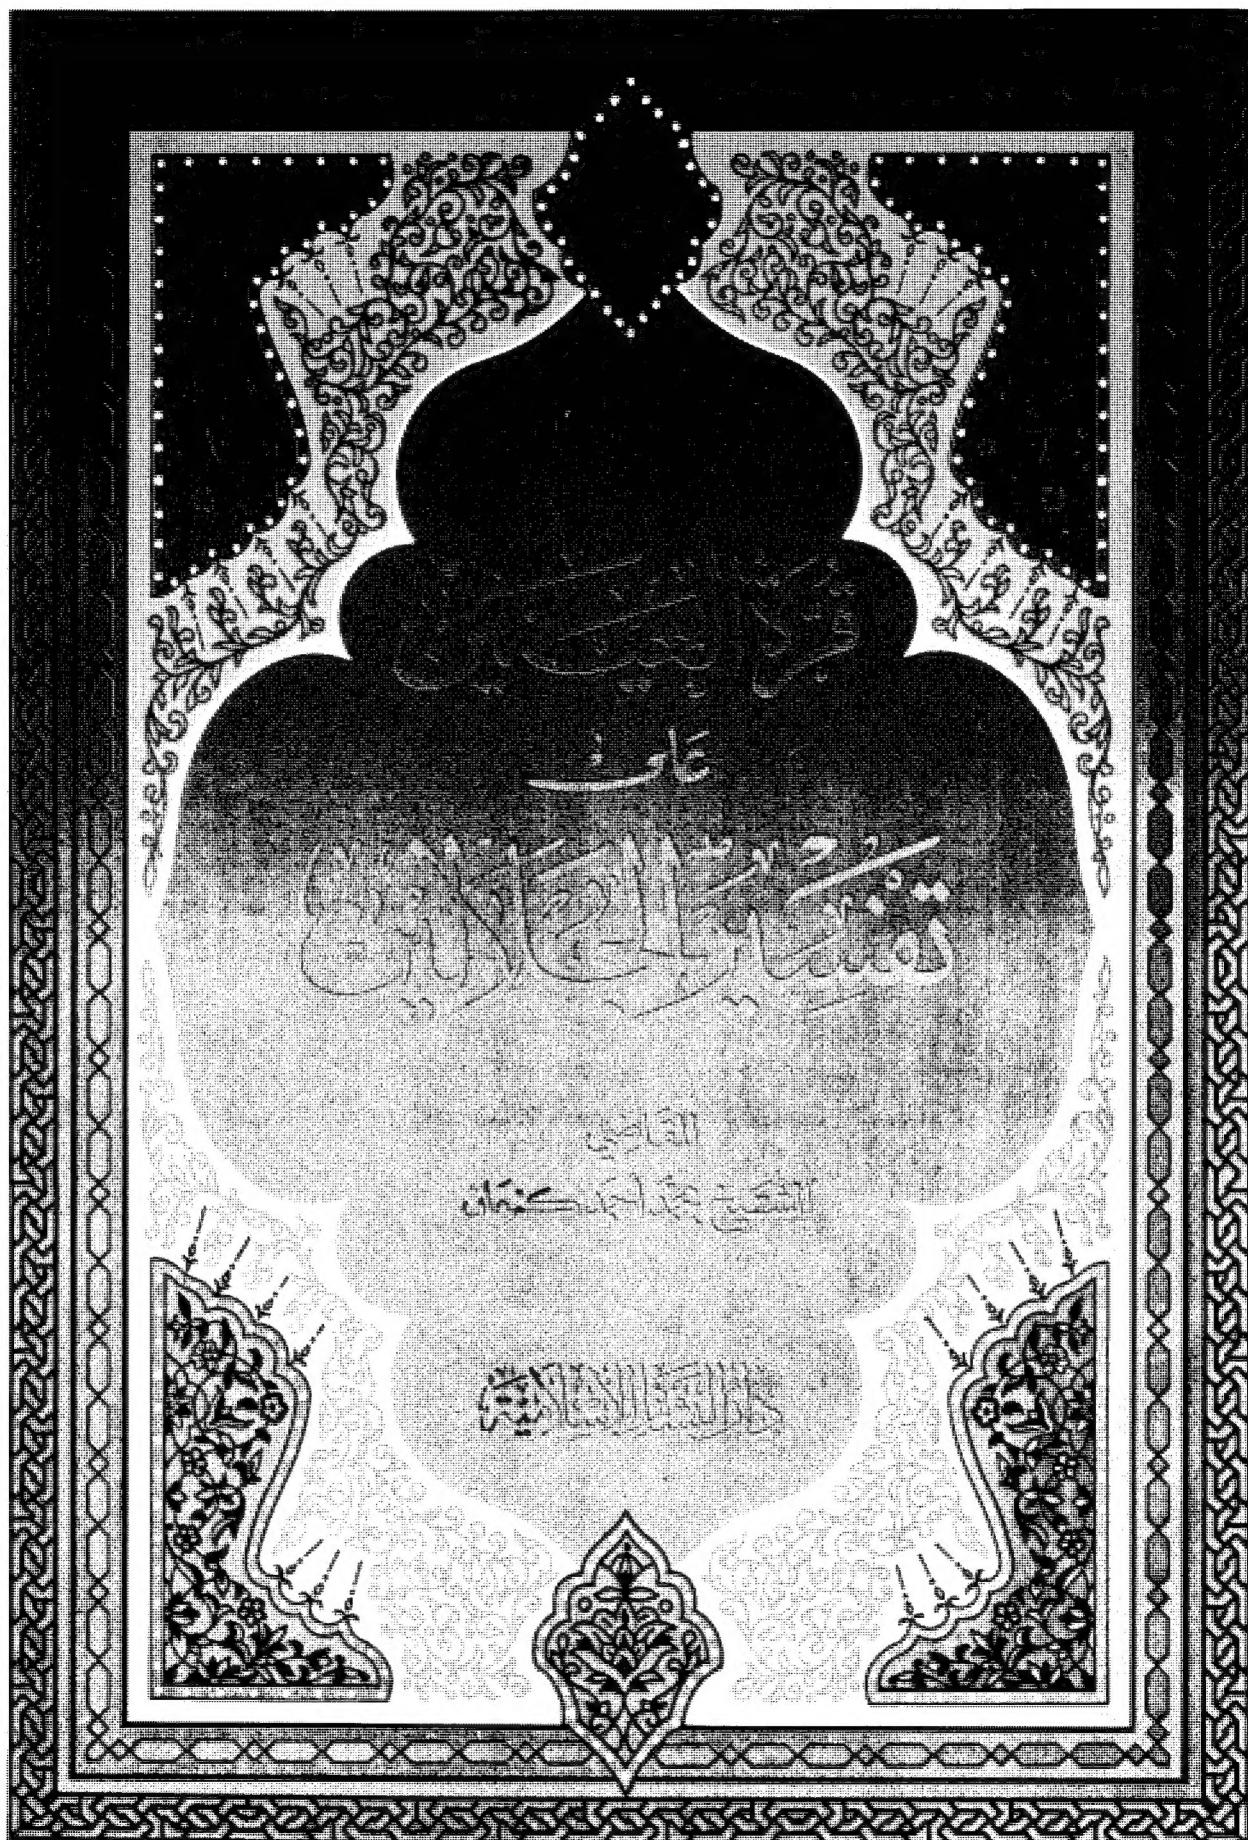 قرة العينين
على
تفسير الجلالين
القاضي
الشيخ محمد أحمد كنعان
دار البشائر الإسلامية